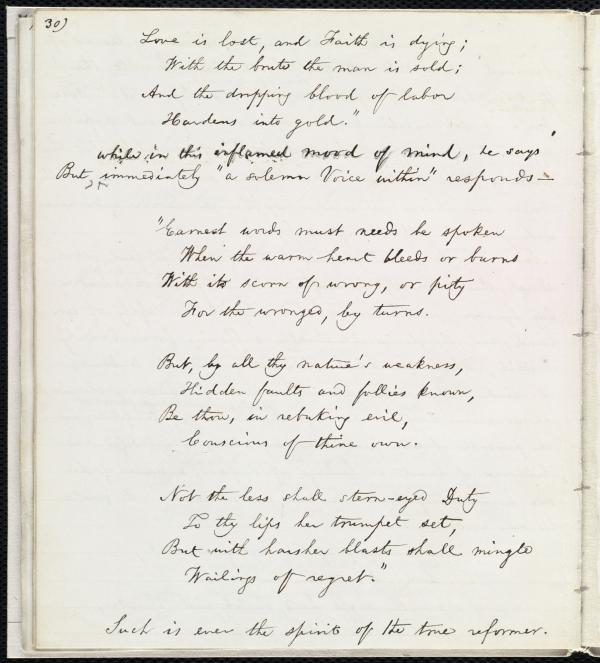 30)
Love is lost, and Faith is dying;
With the brute the man is sold;
And the dropping blood of labor
Hardens into gold."
while in this inflamed mood of mind, he says
But, immediately "a solemn Voice within" responds—
"Earnest words must needs be spoken
When the warm heart bleeds or burns
With its scorn of wrong, or pity
For the wronged, by turns.
But, by all thy nature's weakness,
Hidden faults and follies known,
Be thou, in rebuking evil,
Conscious of thine own.
Not the less shall stern-eyed Duty
To thy lips her trumpet set,
But with harsher blasts shall mingle
Wailings of regret."
Such is ever the spirit of the true reformer.